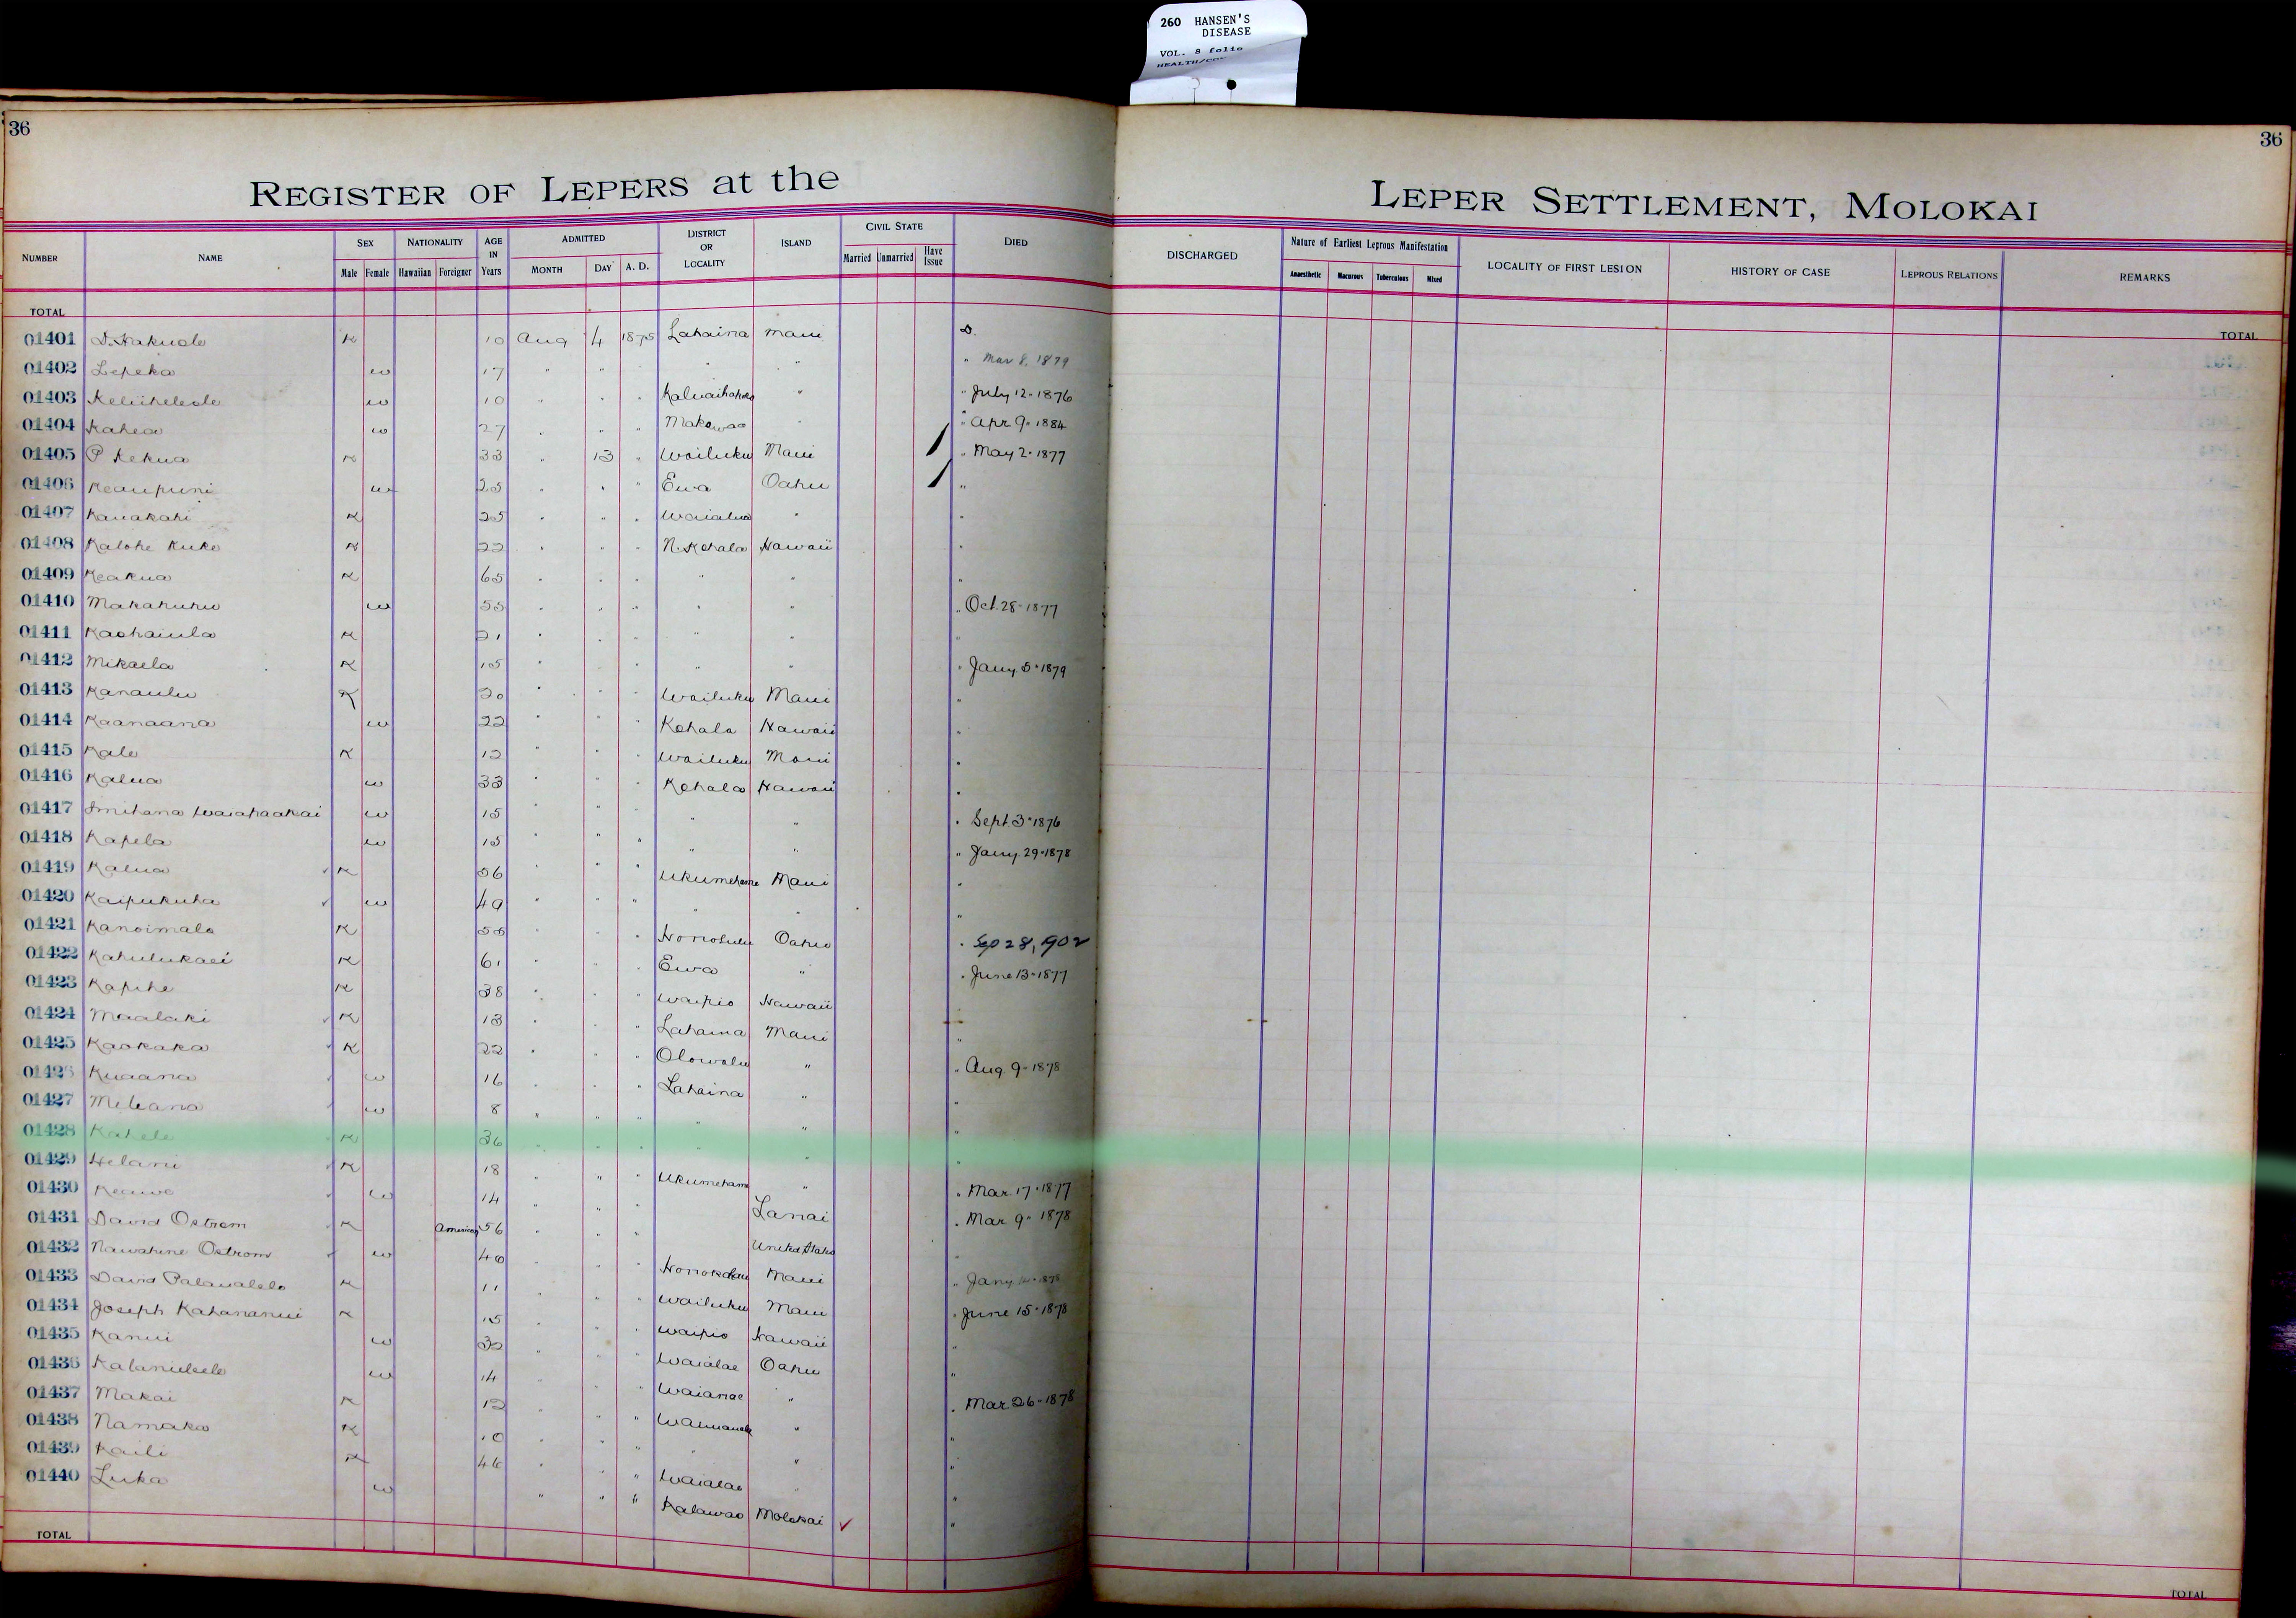 260 HANSEN'S
DISEASE
VOL. 8 folio
36
36
REGISTER OF LEPERS at the
LEPER SETTLEMENT, MOLOKAI
NUMBER NAME SEX Male Female NATIONALITY Hawaiian Foreigner AGE IN Years ADMITTED MONTH DAY A. D. DISTRICT OR LOCALITY ISLAND CIVIL STATE Married Unmarried Have Issue DIED
DISCHARGED Nature of Earliest Leprous Manifestation Anaesthetic Macurous Tuberculous Mixed LOCALITY OF FIRST LESION HISTORY OF CASE LEPROUS RELATIONS REMARKS
TOTAL
TOTAL
01401 D. Hakuole K 10 Aug 14 1875 Lahaina Maui D.
01402 Lepeka w 17 " " " " " Mar 8. 1879
01403 w 10 " " " " " July 12 - 1876
01404 Kahea w 27 " " " Makawao " " Apr 9 - 1884
01405 P Kekua K 33 " 13 " Wailuku Maui " May 2 - 1877
01406 Keaupuni w 25 " " " Ewa Oahu "
01407 Kauakahi K 25 " " " Waialua " "
01408 Kalohe Kuke K 22 " " " N. Kohala Hawaii "
01409 Keakua K 65 " " " " " "
01410 Makahuhu w 55 " " " " " " Oct. 28 - 1877
01411 Kaohaiula K 21 " " " " " "
01412 Mikaela K 15 " " " " " " Jany 5 - 1879
01413 Kanaulu K 20 " " " Wailuku Maui "
01414 Kaanaana w 22 " " " Kohala Hawaii "
01415 Kale K 12 " " " Wailuku Maui "
01416 Kalua w 33 " " " Kohala Hawaii "
01417 w 15 " " " " " " Sept. 3 - 1876
01418 Kapela w 15 " " " " " " Jany. 29 - 1878
01419 Kalua K 56 " " " Ukumehame Maui "
01420 Kaipukuha w 49 " " " " " "
01421 Kanoimalo K " " " Honolulu Oahu " Sep 28, 1902
01422 Kahulukaei K 61 " " " Ewa " " June 13 - 1877
01423 Kapihe K 38 " " " Waipio Hawaii
01424 Maalaki K 13 " " " Lahaina Maui "
01425 Kaokaka K 22 " " " Olowalu " " Aug. 9 - 1878
01426 Kuaana w 16 " " " Lahaina " "
01427 Meleana w 8 " " " " " "
01428 Kahele K 36 " " " " " "
01429 Helani K 18 " " " Ukumehame " " Mar. 17 - 1877
01430 Keawe w 14 " " " Lanai " Mar. 9 - 1878
01431 David Ostrom K American 56 " " " United States "
01432 Nawahine Ostrom w 40 " " " Honokohau Maui " Jany
01433 David Palaualelo K 11 " " " Wailuku Maui " June 15 - 1878
01434 Joseph Kahananui K 15 " " " Waipio Hawaii "
01435 Kanui w 32 " " " Waialae Oahu "
01436 w 14 " " " Waianae " " Mar. 26 - 1878
01437 Makai K 12 " " " " "
01438 Namaka K 10 " " " " " "
01439 Kaili K 46 " " " Waialae " "
01440 Luka w " " " Kalawao Molokai "
TOTAL
TOTAL